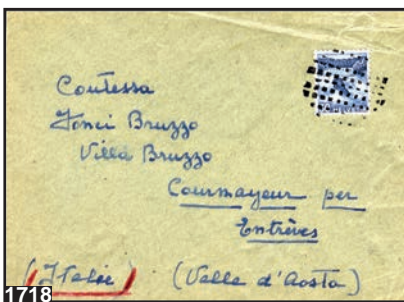 Contessa
Jonci Bruzzo
Villa Bruzzo
Courmayeur per
Entrèves
(Italie) (Valle d'Aosta)
1718